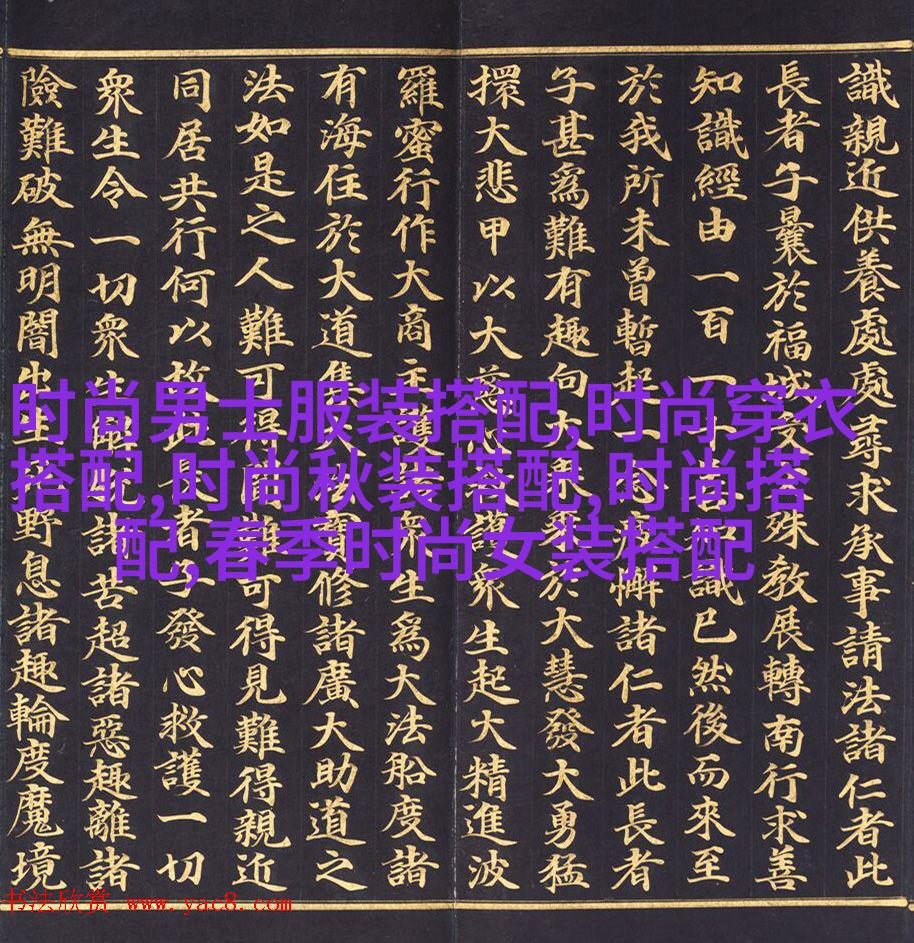 識親近供養處處尋求承事請法諸仁者此
長者子曩於福城受
殊教展轉南行求善
知識經由一百一十善知識已然後而來至
於我所未曾暫起一念
懈諸仁者此長者
子甚為難有趣向大乘
於大慧發大勇猛
擐大悲甲以大慈心
護眾生起大精進波
羅蜜行作大商主護
眾生為大法船度諸
有海住於大道集
法寶修諸廣大助道之
法如是之人難可得聞難可得見難得親近
同居共行何以故此長者子發心救護一切
眾生令一切眾生解
諸苦超諸惡趣離諸
險難破無明闇出生死野息諸趣輪度魔境
时尚男士服装搭配,时尚穿衣
搭配,时尚秋装搭配,时尚搭
配,春季时尚女装搭配
书法欣赏 www.yac8.com